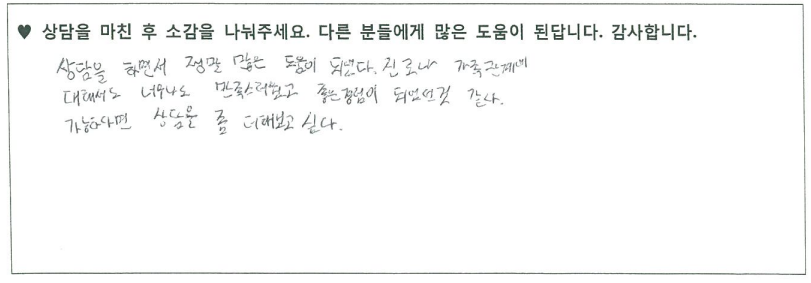 ♥ 상담을 마친 후 소감을 나눠주세요. 다른 분들에게 많은 도움이 된답니다. 감사합니다.
상담을 하면서 정말 많은 도움이 되었다. 진로나 가족관계에
대해서도 너무나도 만족스러웠고 좋은경험이 되었던것 같다.
가능하다면 상담을 좀 더해보고 싶다.